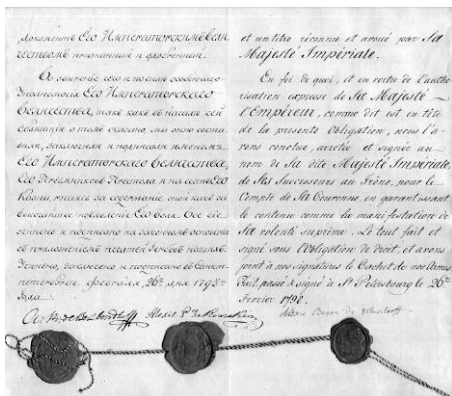 документъ Его Императорскимъ вели-
чествомъ признанный и одобренный.
Его Императорскаго
Величества, такъ какъ въ началѣ сей
Облигации о томъ сказано, мы оною соста-
вили, заключили и подписали именемъ
Его Императорскаго Величества,
Его Преемниковъ Престола и на счетъ Его
Короны, ручаясь за содержание оной какъ за
высочайшее повелѣние Его воли. Все сіе
учинено и подписано на законномъ основании
съ приложениемъ печатей гербовъ нашихъ.
Учинено, заключено и подписано въ Санкт-
петербургѣ, февраля 26го дня 1798го
Года.
et un titre reconnu et avoué par Sa
Majesté Impériale.
En foi de quoi, et en vertu de l'autho-
risation expresse de Sa Majesté
l'Empereur, comme dit est en tête
de la présente Obligation, nous l'a-
vons conclue, arretée et signée au
nom de Sa dite Majesté Impériale,
de Ses Successeurs au Trône, pour le
Compte de Sa Couronne, en garantissant
le contenu comme la manifestation de
Sa volonté suprême. Le tout fait et
signé sous l'Obligation de droit, et avons
joint à nos signatures le Cachet de nos Armes.
Fait, passé & signé à St. Petersbourg le 26.
Fevrier 1798.
Alexis P.
Baron de